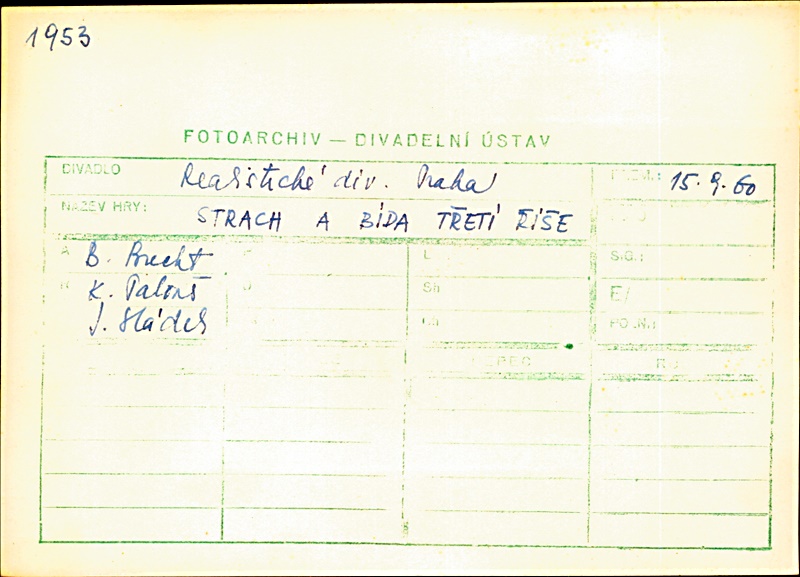 1953
FOTOARCHIV — DIVADELNÍ ÚSTAV
DIVADLO Realistické div. Praha PREM.: 15.9.60
NÁZEV HRY: STRACH A BÍDA TŘETÍ ŘÍŠE
A B. Brecht L SIG.:
R K. Palouš Sh E/
J. Hádek POŘ.N.: